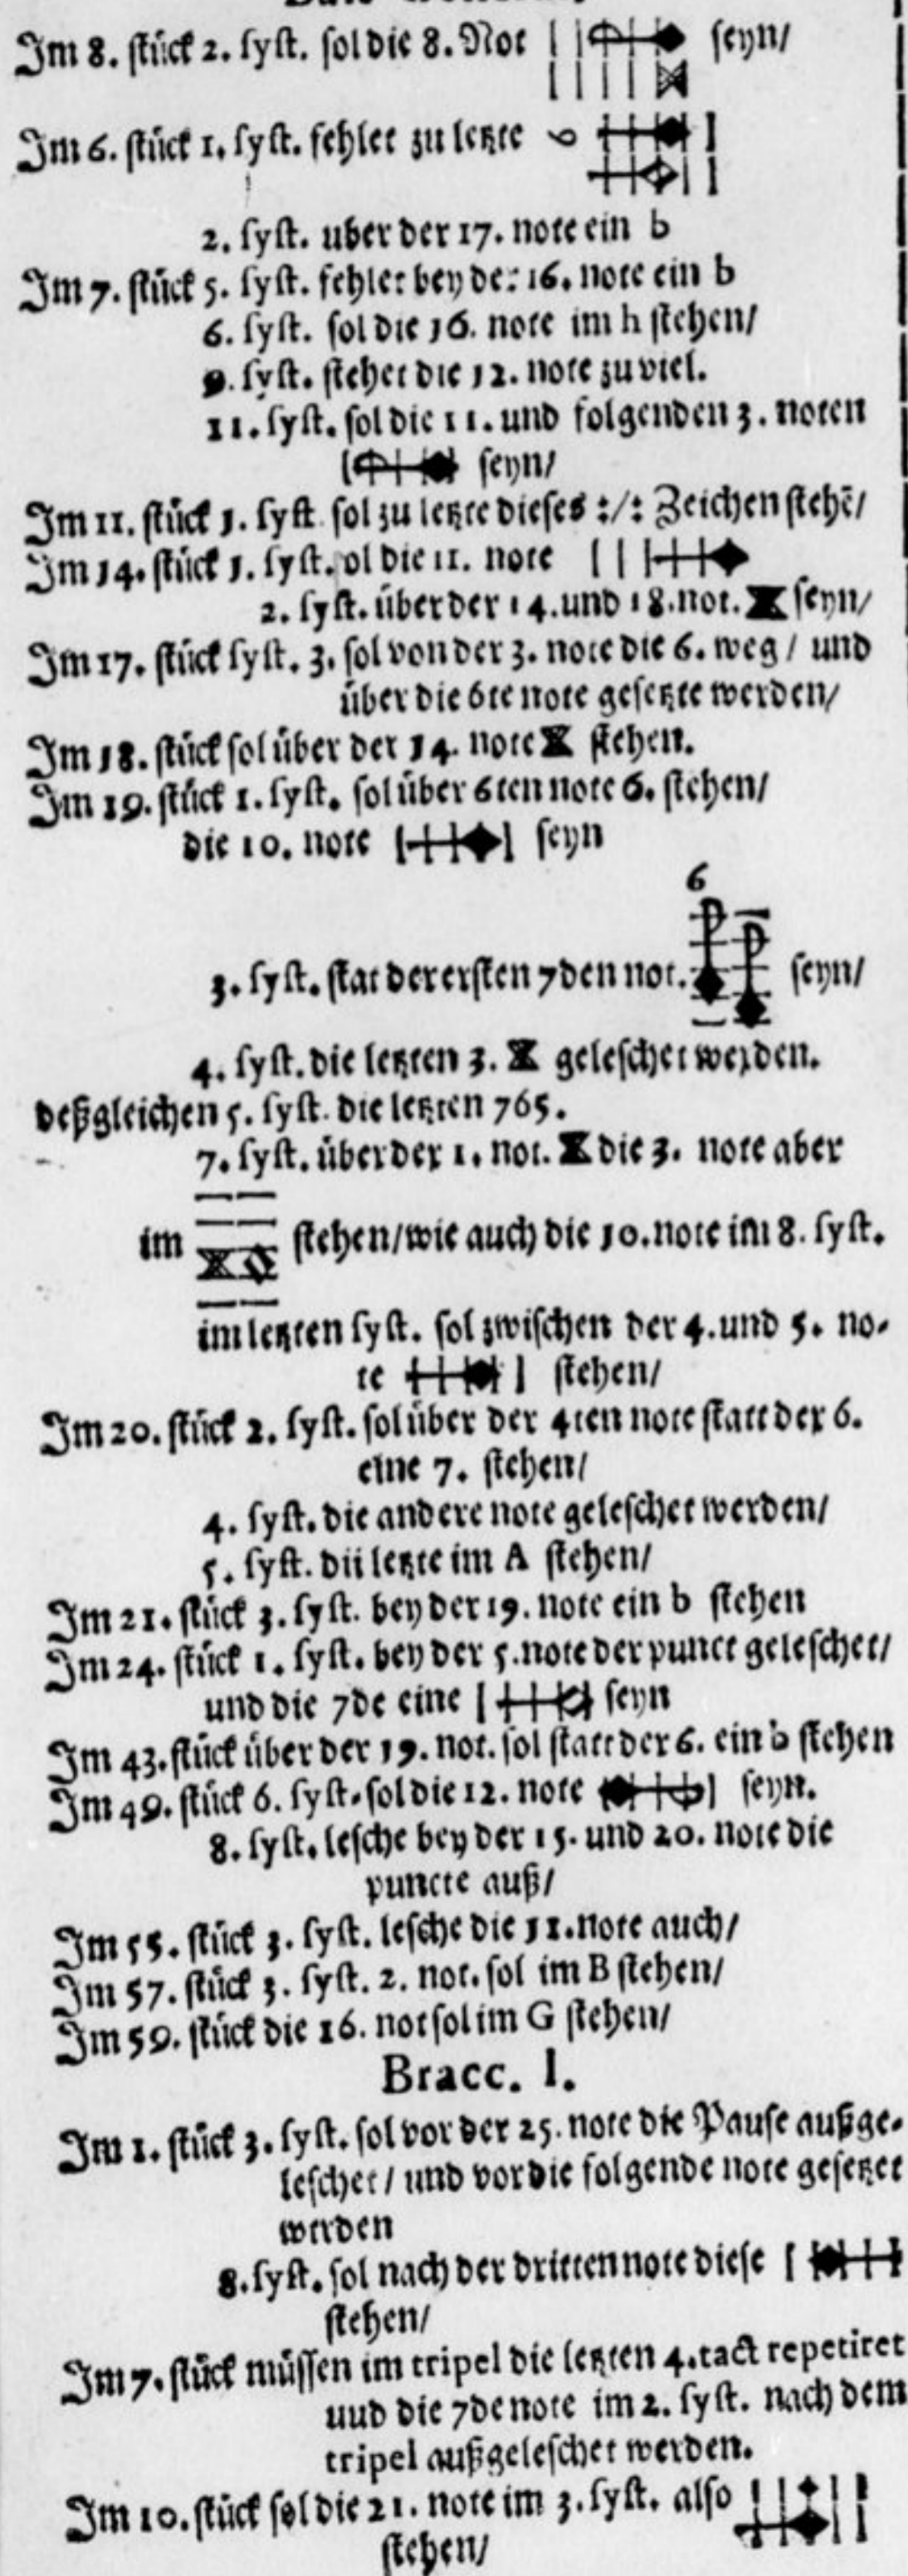 Im 8. stück 2. syst. sol die 8. Not seyn/
Im 6. stück 1. syst. fehlet zu letzte
2. syst. uber der 17. note ein b
Im 7. stück 5. syst. fehlet bey der 16. note ein b
6. syst. sol die 16. note im h stehen/
9. syst. stehet die 12. note zu viel.
11. syst. sol die 11. und folgenden 3. noten
seyn/
Im 11. stück 1. syst. sol zu letzte dieses :/: Zeichen stehē/
Im 14. stück 1. syst. ol die 11. note
2. syst. über der 14. und 18. not. seyn/
Im 17. stück syst. 3. sol von der 3. note die 6. weg / und
über die 6te note gesetzte werden/
Im 18. stück sol über der 14. note stehen.
Im 19. stück 1. syst. sol über 6ten note 6. stehen/
die 10. note seyn
6
3. syst. stat der ersten 7den not. seyn/
4. syst. die letzten 3. geleschet werden.
deßgleichen 5. syst. die letzten 765.
7. syst. über der 1. not. die 3. note aber
im stehen/wie auch die 10. note im 8. syst.
im letzten syst. sol zwischen der 4. und 5. no-
te stehen/
Im 20. stück 2. syst. sol über der 4ten note statt der 6.
eine 7. stehen/
4. syst. die andere note geleschet werden/
5. syst. dii letzte im A stehen/
Im 21. stück 3. syst. bey der 19. note ein b stehen
Im 24. stück 1. syst. bey der 5. note der punct geleschet/
und die 7de eine seyn
Im 43. stück über der 19. not. sol statt der 6. ein b stehen
Im 49. stück 6. syst. sol die 12. note seyn.
8. syst. lesche bey der 15. und 20. note die
puncte auß/
Im 55. stück 3. syst. lesche die 11. note auch/
Im 57. stück 3. syst. 2. not. sol im B stehen/
Im 59. stück die 16. not sol im G stehen/
Bracc. I.
Im 1. stück 3. syst. sol vor der 25. note die Pause außge-
leschet / und vor die folgende note gesetzet
werden
8. syst. sol nach der dritten note diese
stehen/
Im 7. stück müssen im tripel die letzten 4. tact repetiret
uud die 7de note im 2. syst. nach dem
tripel außgeleschet werden.
Im 10. stück sol die 21. note im 3. syst. also
stehen/